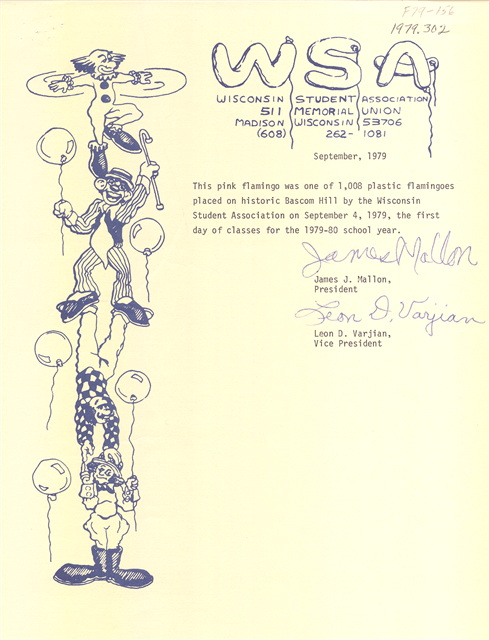 F79-156
1979.302
WSA
WISCONSIN STUDENT ASSOCIATION
511 MEMORIAL UNION
MADISON WISCONSIN 53706
(608) 262-1081
September, 1979
This pink flamingo was one of 1,008 plastic flamingoes
placed on historic Bascom Hill by the Wisconsin
Student Association on September 4, 1979, the first
day of classes for the 1979-80 school year.
James Mallon
James J. Mallon,
President
Leon D. Varjian
Leon D. Varjian,
Vice President